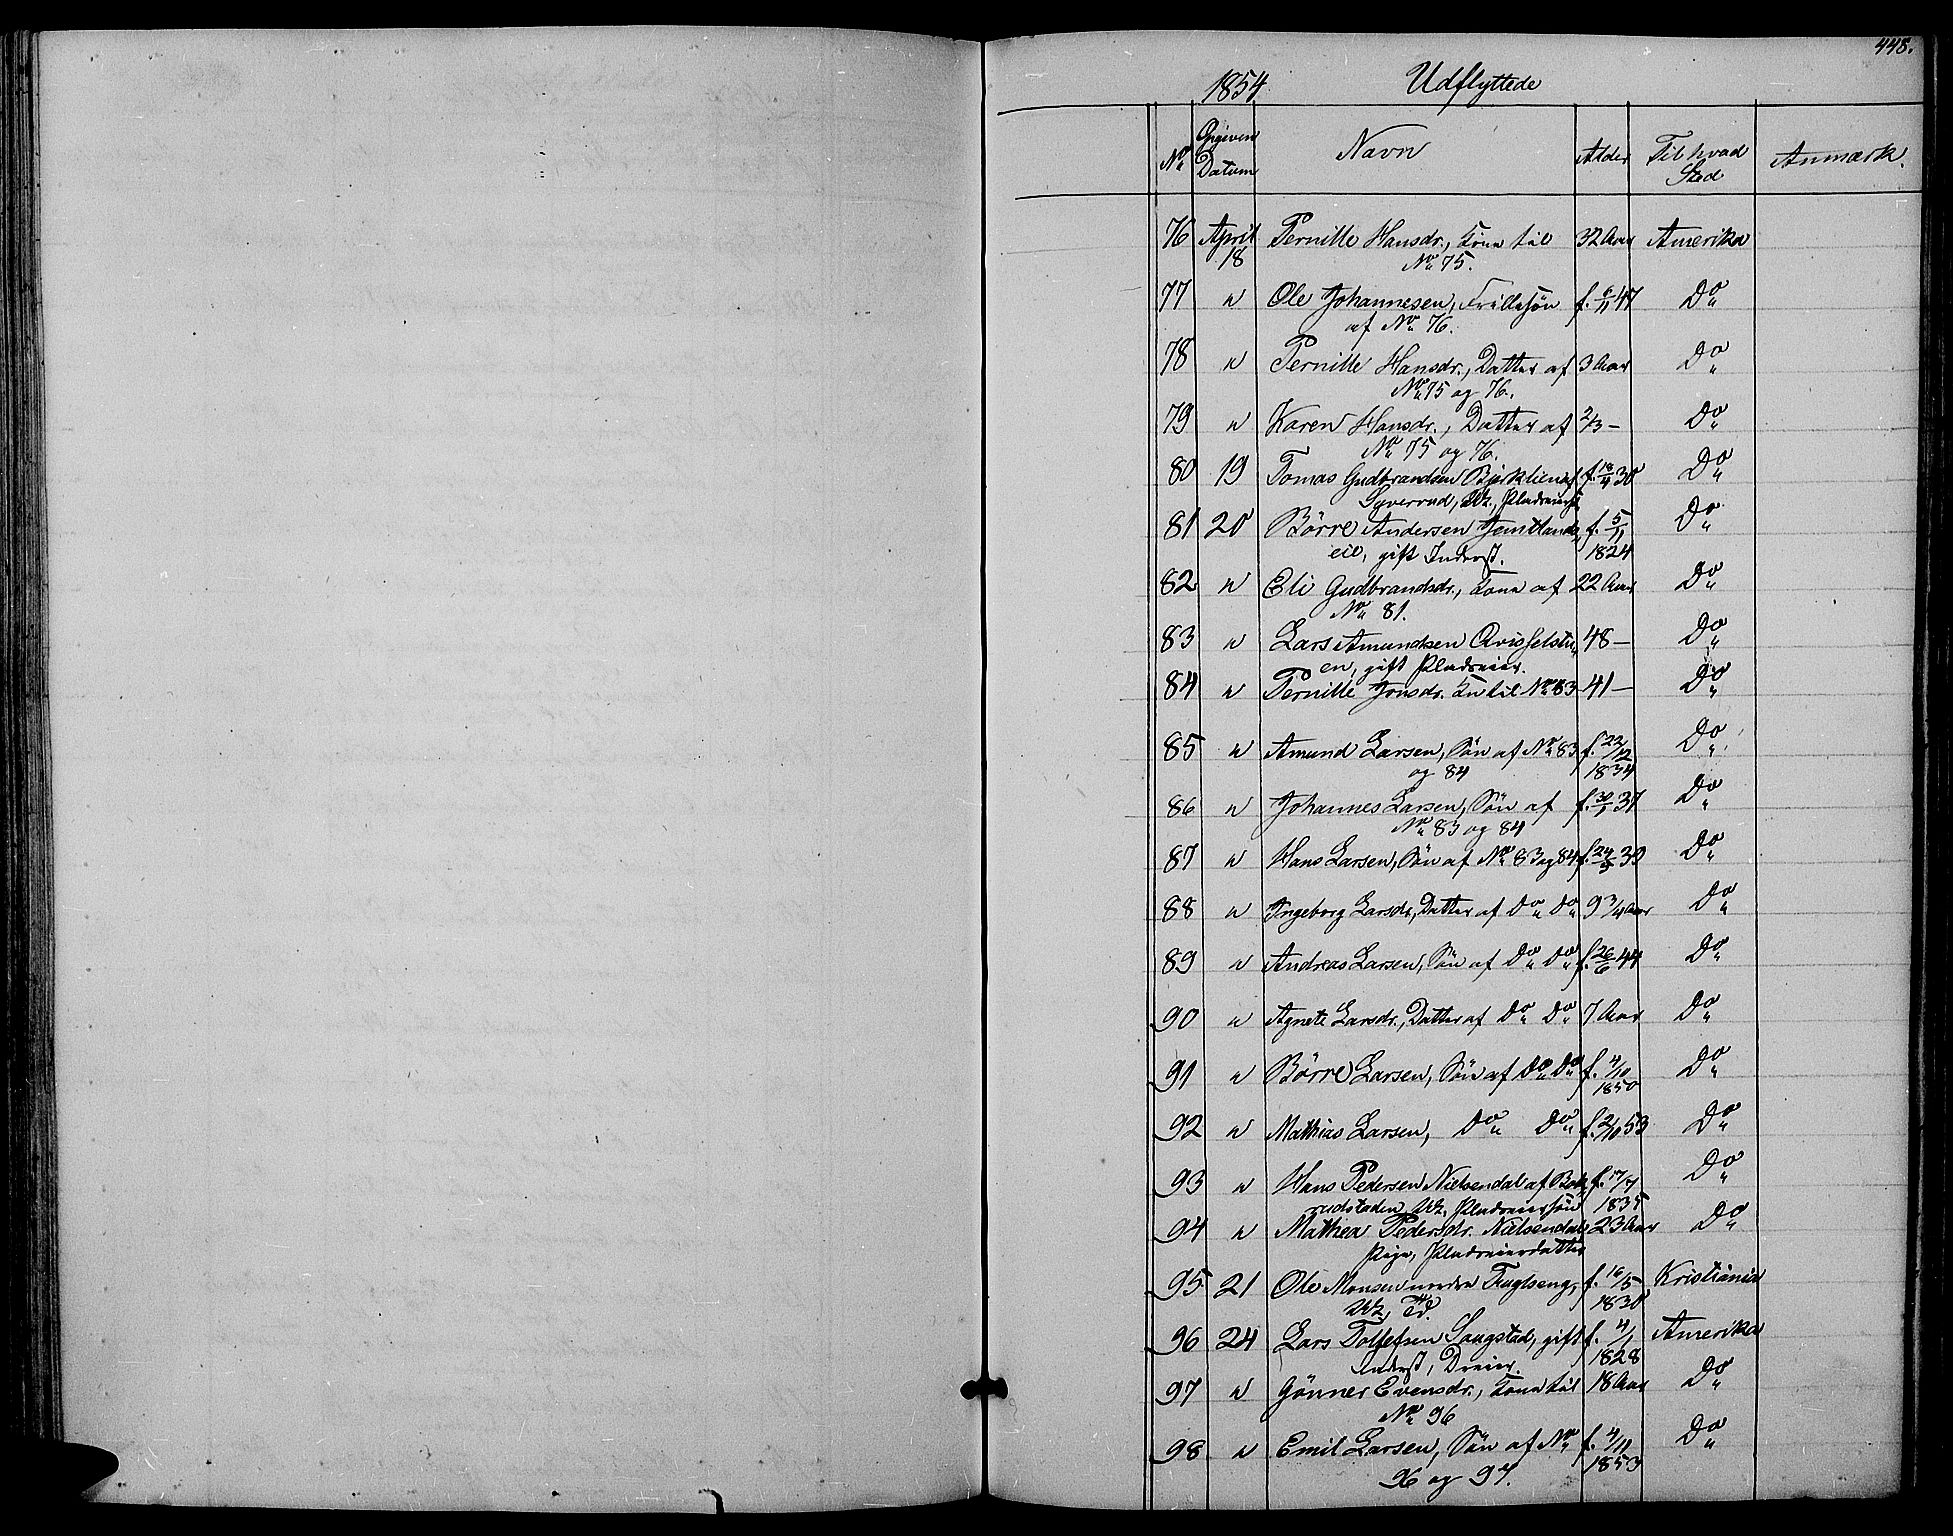 448.
1854 Udflyttede
No Opgiven Datum Navn Alder Til hvad Sted Anmærk.
76 April 18 Pernille Hansdr., Kone til 32 Aar Amerika
No 75.
77 " Ole Johannesen, Frillesøn f. 6/11 47 Do
af No 76.
78 " Pernille Hansdr., Datter af 3 Aar Do
No 75 og 76.
79 " Karen Hansdr., Datter af 2/3 — Do
No 75 og 76.
80 19 Tomas Gudbrandsen Bjerklien af f. 18/4 30 Do
Syverrud, Pladseier
81 20 Börre Andersen Jemtlands f. 5/11 Do
eie, gift Inderst. 1824
82 " Eli Gudbrandsdr., Kone af 22 Aar Do
No 81.
83 " Lars Amundsen 48 — Do
en, gift Pladseier.
84 " Pernille Jonsdr. Kn til No 83 41 — Do
85 " Amund Larsen, Søn af No 83 f. 22/12 Do
og 84 1834
86 " Johannes Larsen, Søn af f. 30/1 37 Do
No 83 og 84
87 " Hans Larsen, Søn af No 83 og 84 f. 39 Do
88 " Ingeborg Larsdr., Datter af Do Do 9 3/4 Aar Do
89 " Andreas Larsen, Søn af Do Do f. 26/6 44 Do
90 " Agnete Larsdr., Datter af Do Do 7 Aar Do
91 " Börre Larsen, Søn af Do Do f. 4/10 Do
1850
92 " Mathias Larsen, Do Do f. 2/10 53 Do
93 " Hans Pedersen Nielsendal af f. 17/7 Do
Uk, Pladseiersøn 1835
94 " Mathea Pedersdr. Nielsendal 23 Aar Do
Pige, Pladseierdatter
95 21 Ole Monsen nordre Fuglseng, f. 16/5 Kristiania
1830
96 24 Lars Tollefsen Saugstad, gift f. 4/1 Amerika
Inderst, Dreier. 1828
97 " Gönner Evensdr., Kone til 18 Aar Do
No 96
98 " Emil Larsen, Søn af No f. 4/11 Do
96 og 97. 1853